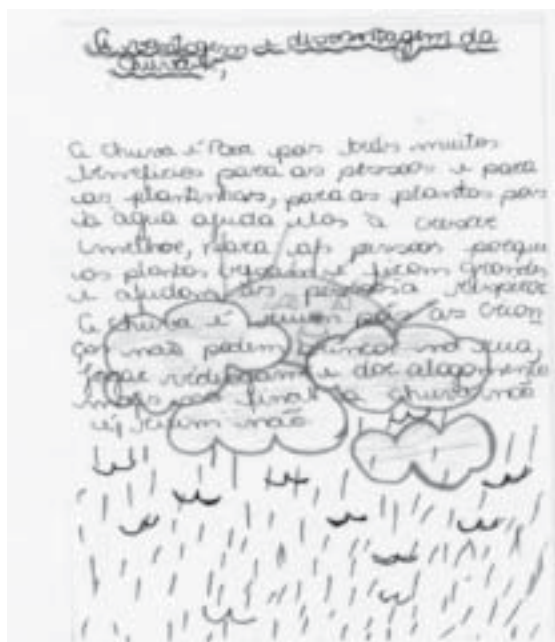 A vantagem e disvantagem da
chuva,
A chuva é Boa pois traz muitos
benefícios para as pessoas e para
as plantinhas, para as plantas pois
a água ajuda elas à crescer
melhor, para as pessoas porque
as plantas e ficam grandes
e ajudam as pessoas à respirar
A chuva é ruim pois as crian
ças não podem brincar na rua,
jogar videogame e dar alagamento
mais no final a chuva não
é, ruim não